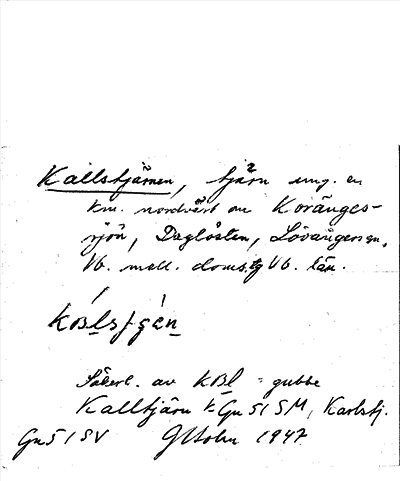 Kallstjärnen, tjärn ung. en
km. nordväst om Koränges-
sjön, Daglösten, Lövångers sn,
Vb. mell. doms.tg Vb. län.
Säkerl. av = gubbe
Kalltjärn Gu 51 SM, Karlstj.
Gu 51 SV 1947